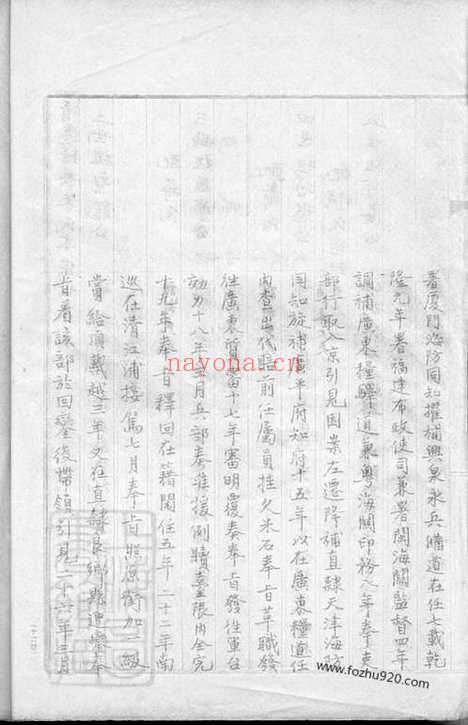 署厦门海防同知擢補興泉永兵備道在任七载乾
隆元年署福建布政使司兼署閩海關監督四年
調補廣東糧驛道兼粤海關印務八年奉吏
部行取入京引見因案左遷降補直隸天津海防
同知旋補廣平府知府十五年以在廣東糧道任
内查出代賠前任屬員挂欠米石奉旨革職發
往廣東質審十七年審明覆奏奉旨發往軍台
効力十八年十一月兵部奏准援例贖臺限内全完
十九年奉旨釋回在籍閑住五年二十二年南
巡在清江浦接駕七月奉旨照原銜加一級
賞給頂戴越三年又在直隸良鄉縣迎鑾奉
旨着該部於回鑾後帶領引見二十六年三月
nayona.cn
www.fozhu920.com